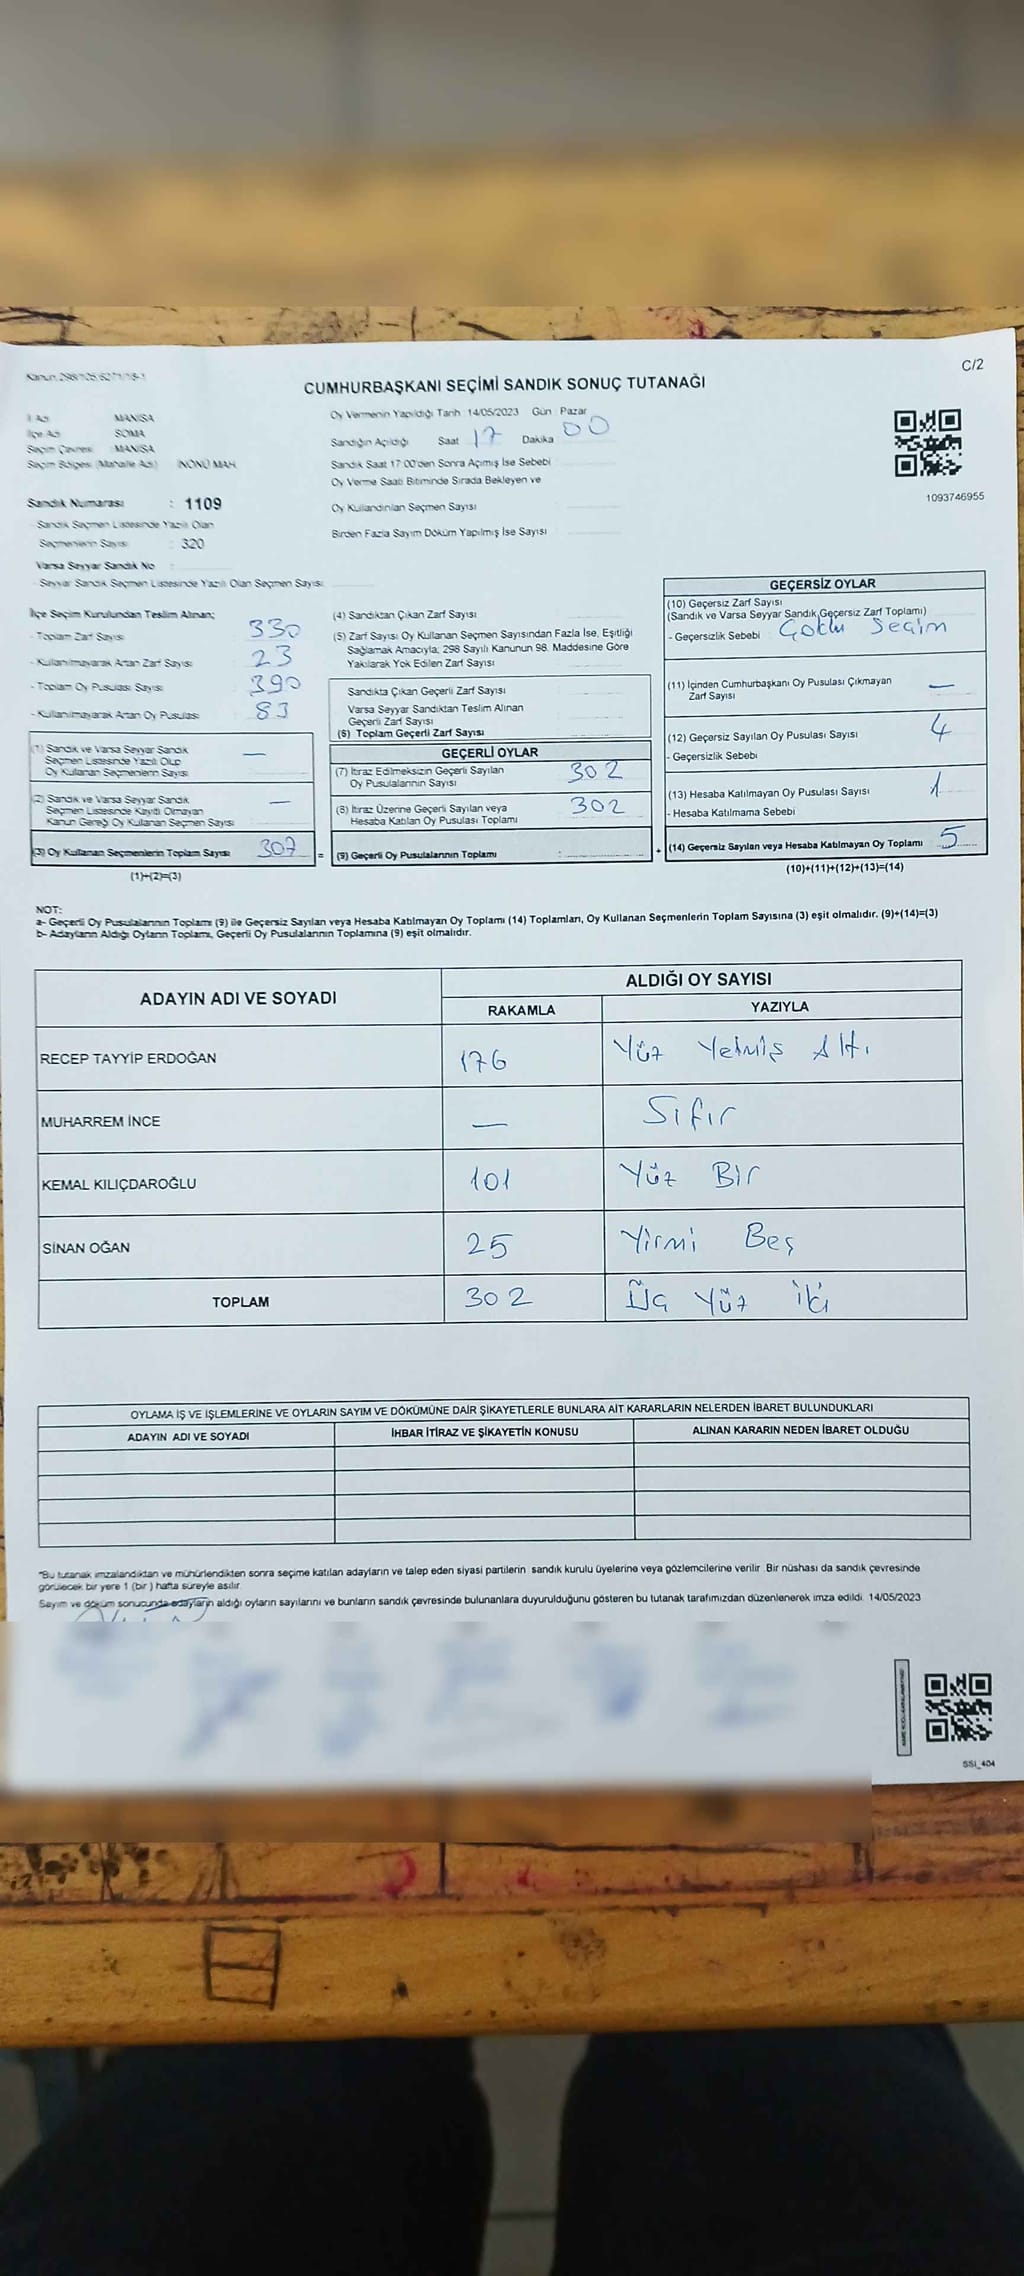 Kanun:298/105,6271/18-1
C/2
CUMHURBAŞKANI SEÇİMİ SANDIK SONUÇ TUTANAĞI
İl Adı MANİSA
İlçe Adı SOMA
Seçim Çevresi :MANİSA
Seçim Bölgesi (Mahalle Adı) İNÖNÜ MAH.
Sandık Numarası : 1109
- Sandık Seçmen Listesinde Yazılı Olan
Seçmenlerin Sayısı : 320
Varsa Seyyar Sandık No :
- Seyyar Sandık Seçmen Listesinde Yazılı Olan Seçmen Sayısı:
Oy Vermenin Yapıldığı Tarih :14/05/2023 Gün : Pazar
Sandığın Açıldığı Saat 17 Dakika 00
Sandık Saat 17:00'den Sonra Açımış İse Sebebi
Oy Verme Saati Bitiminde Sırada Bekleyen ve
Oy Kullandırılan Seçmen Sayısı
Birden Fazla Sayım Döküm Yapılmış İse Sayısı
1093746955
İlçe Seçim Kurulundan Teslim Alınan;
- Toplam Zarf Sayısı 330
- Kullanılmayarak Artan Zarf Sayısı 23
- Toplam Oy Pusulası Sayısı 390
- Kullanılmayarak Artan Oy Pusulası 83
(1) Sandık ve Varsa Seyyar Sandık —
Seçmen Listesinde Yazılı Olup
Oy Kullanan Seçmenlerin Sayısı
(2) Sandık ve Varsa Seyyar Sandık —
Seçmen Listesinde Kayıtlı Olmayan
Kanun Gereği Oy Kullanan Seçmen Sayısı
(3) Oy Kullanan Seçmenlerin Toplam Sayısı 307 =
(1)+(2)=(3)
(4) Sandıktan Çıkan Zarf Sayısı
(5) Zarf Sayısı Oy Kullanan Seçmen Sayısından Fazla İse, Eşitliği
Sağlamak Amacıyla; 298 Sayılı Kanunun 98. Maddesine Göre
Yakılarak Yok Edilen Zarf Sayısı
Sandıkta Çıkan Geçerli Zarf Sayısı
Varsa Seyyar Sandıktan Teslim Alınan
Geçerli Zarf Sayısı
(6) Toplam Geçerli Zarf Sayısı
GEÇERLİ OYLAR
(7) İtiraz Edilmeksizin Geçerli Sayılan 302
Oy Pusulalarının Sayısı
(8) İtiraz Üzerine Geçerli Sayılan veya 302
Hesaba Katılan Oy Pusulası Toplamı
(9) Geçerli Oy Pusulalarının Toplamı : +
GEÇERSİZ OYLAR
(10) Geçersiz Zarf Sayısı
(Sandık ve Varsa Seyyar Sandık Geçersiz Zarf Toplamı)
- Geçersizlik Sebebi : Çoklu Seçim
(11) İçinden Cumhurbaşkanı Oy Pusulası Çıkmayan —
Zarf Sayısı
(12) Geçersiz Sayılan Oy Pusulası Sayısı 4
- Geçersizlik Sebebi
(13) Hesaba Katılmayan Oy Pusulası Sayısı 1
- Hesaba Katılmama Sebebi
(14) Geçersiz Sayılan veya Hesaba Katılmayan Oy Toplamı 5
(10)+(11)+(12)+(13)=(14)
NOT:
a- Geçerli Oy Pusulalarının Toplamı (9) ile Geçersiz Sayılan veya Hesaba Katılmayan Oy Toplamı (14) Toplamları, Oy Kullanan Seçmenlerin Toplam Sayısına (3) eşit olmalıdır. (9)+(14)=(3)
b- Adayların Aldığı Oyların Toplamı, Geçerli Oy Pusulalarının Toplamına (9) eşit olmalıdır.
ADAYIN ADI VE SOYADI ALDIĞI OY SAYISI
RAKAMLA YAZIYLA
RECEP TAYYİP ERDOĞAN 176 Yüz Yetmiş Altı
MUHARREM İNCE — Sıfır
KEMAL KILIÇDAROĞLU 101 Yüz Bir
SİNAN OĞAN 25 Yirmi Beş
TOPLAM 302 Üç Yüz iki
OYLAMA İŞ VE İŞLEMLERİNE VE OYLARIN SAYIM VE DÖKÜMÜNE DAİR ŞİKAYETLERLE BUNLARA AİT KARARLARIN NELERDEN İBARET BULUNDUKLARI
ADAYIN ADI VE SOYADI İHBAR İTİRAZ VE ŞİKAYETİN KONUSU ALINAN KARARIN NEDEN İBARET OLDUĞU
*Bu tutanak imzalandıktan ve mühürlendikten sonra seçime katılan adayların ve talep eden siyasi partilerin sandık kurulu üyelerine veya gözlemcilerine verilir. Bir nüshası da sandık çevresinde
görülecek bir yere 1 (bir ) hafta süreyle asılır.
Sayım ve döküm sonucunda adayların aldığı oyların sayılarını ve bunların sandık çevresinde bulunanlara duyurulduğunu gösteren bu tutanak tarafımızdan düzenlenerek imza edildi. 14/05/2023
SSI_404